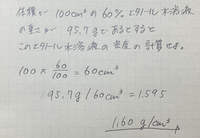 体積が 100cm³ の 60% エタノール水溶液
の重さが 95.7g であるとすると
このエタノール水溶液の密度の計算せよ。
100 × 60/100 = 60cm³
95.7g / 60cm³ = 1.595
1.60 g/cm³